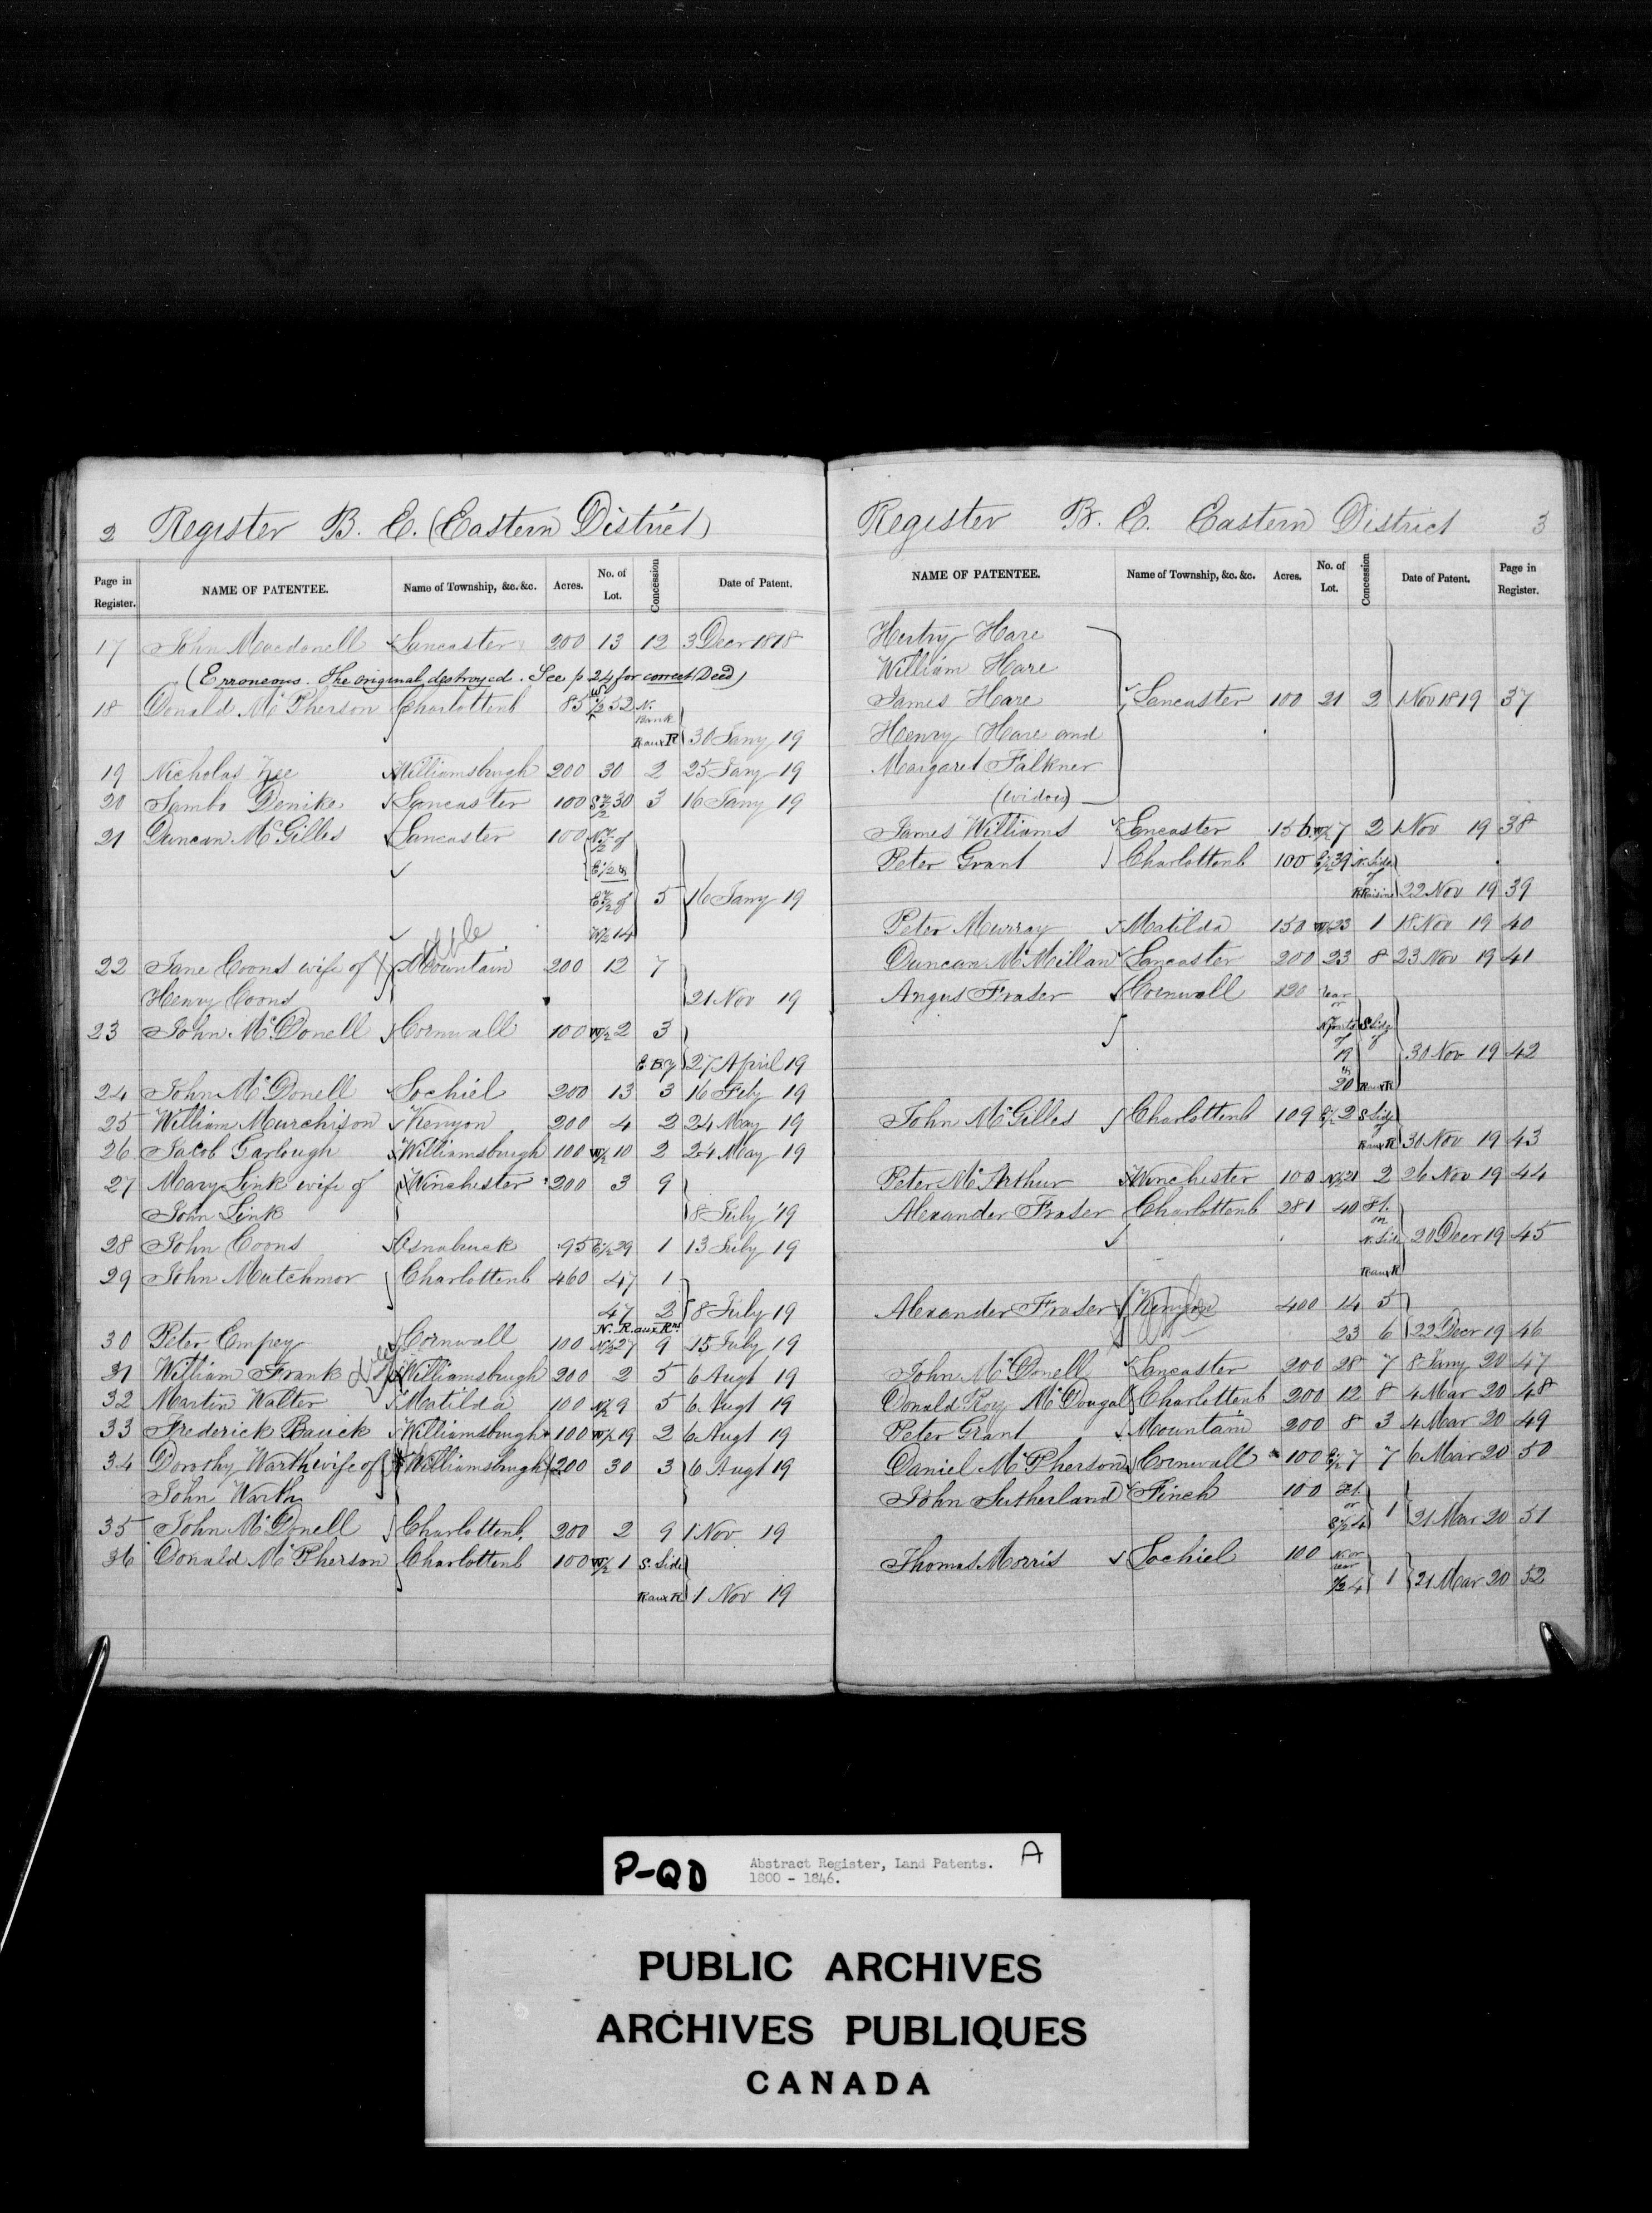 2 Register B. E. (Eastern District)
Page in Register. NAME OF PATENTEE. Name of Township, &c. &c. Acres. No. of Lot. Concession Date of Patent.
17 John Macdonell Lancaster 200 13 12 3 Decr 1818
(Erroneous. The original destroyed. See p 24 for correct Deed)
18 Donald McPherson Charlottenb 85 W 1/2 52 N.
Bank
Raux R 30 Jany 19
19 Nicholas Williamsburgh 200 30 2 25 Jany 19
20 Sambo Denike Lancaster 100 30 3 16 Jany 19
21 Duncan McGilles Lancaster 100 1/2 of
E 1/2 &
E 1/2 of 5 16 Jany 19
W 1/2 14
22 Jane Coons wife of Mountain 200 12 7
Henry Coons 21 Nov 19
23 John McDonell Cornwall 100 W 1/2 2 3
27 April 19
24 John McDonell Lochiel 200 13 3 16 Feby 19
25 William Murchison Kenyon 200 4 2 24 May 19
26 Jacob Garlough Williamsburgh 100 W 1/2 10 2 24 May 19
27 Mary Link wife of Winchester 200 3 9
John Link 8 July 19
28 John Coons Osnabruck 95 E 1/2 29 1 13 July 19
29 John Mutchmor Charlottenb 460 47 1
47 2 8 July 19
N. R. aux Rns
30 Peter Empey Cornwall 100 N 1/2 27 9 15 July 19
31 William Frank Williamsburgh 200 2 5 6 Augt 19
32 Martin Walter Matilda 100 N 1/2 9 5 6 Augt 19
33 Frederick Bauck Williamsburgh 100 W 1/2 19 2 6 Augt 19
34 Dorothy Warth wife of Williamsburgh 200 30 3 6 Augt 19
John Warth
35 John McDonell Charlottenb. 200 2 9 1 Nov 19
36 Donald McPherson Charlottenb 100 W 1/2 1 S. Side
Raux R 1 Nov 19
Register B. E. Eastern District 3
NAME OF PATENTEE. Name of Township, &c. &c. Acres. No. of Lot. Concession Date of Patent. Page in Register.
Hare
William Hare
James Hare Lancaster 100 21 2 1 Nov 1819 37
Henry Hare and
Margaret Falkner
(widow)
James Williams Lancaster 156 W 1/2 7 2 1 Nov 19 38
Peter Grant Charlottenb 100 E 1/2 39 N. Side
of
R Raisin 22 Nov 19 39
Peter Murray Matilda 150 W 1/2 23 1 18 Nov 19 40
Duncan McMillan Lancaster 200 23 8 23 Nov 19 41
Angus Fraser Cornwall 120 rear
or
S Side
of of
19 30 Nov 19 42
20 Raux R
John McGilles Charlottenb 109 E 1/2 2 S Side
of
Raux R 30 Nov 19 43
Peter McArthur Winchester 100 N 1/2 21 2 26 Nov 19 44
Alexander Fraser Charlottenb 281 40 Ft.
on
N. Side 20 Decr 19 45
Raux R
Alexander Fraser Kenyon 400 14 5
23 6 22 Decr 19 46
John McDonell Lancaster 200 28 7 8 Jany 20 47
Donald Roy McDougal Charlottenb 200 12 8 4 Mar 20 48
Peter Grant Mountain 200 8 3 4 Mar 20 49
Daniel McPherson Cornwall 100 E 1/2 7 7 6 Mar 20 50
John Sutherland Finch 100 Ft.
or
S 1/2 4 1 21 Mar 20 51
Thomas Morris Lochiel 100 N. or
rear
1/2 4 1 21 Mar 20 52
P-QD Abstract Register, Land Patents. A
1800 - 1846.
PUBLIC ARCHIVES
ARCHIVES PUBLIQUES
CANADA